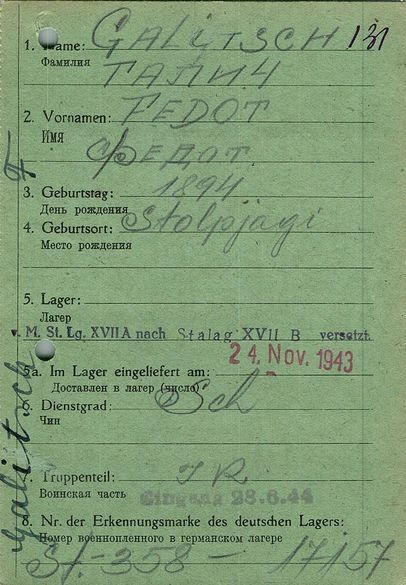 1. Name: GALITSCH 131
Фамилия ГАЛИЧ
2. Vornamen: FEDOT
Имя ФЕДОТ
3. Geburtstag: 1894
День рождения
4. Geburtsort: Stolpjagi
Место рождения
5. Lager:
Лагер
v. M. St. Lg. XVII A nach Stalag XVII B versetzt.
24. Nov. 1943
5a. Im Lager eingeliefert am:
Доставлен в лагер (число)
6. Dienstgrad: Sch
Чин
7. Truppenteil: IR
Воинская часть Eingang 28.6.44
8. Nr. der Erkennungsmarke des deutschen Lagers:
Номер военнопленного в германском лагере
St.-358 - 17157
Galitsch F